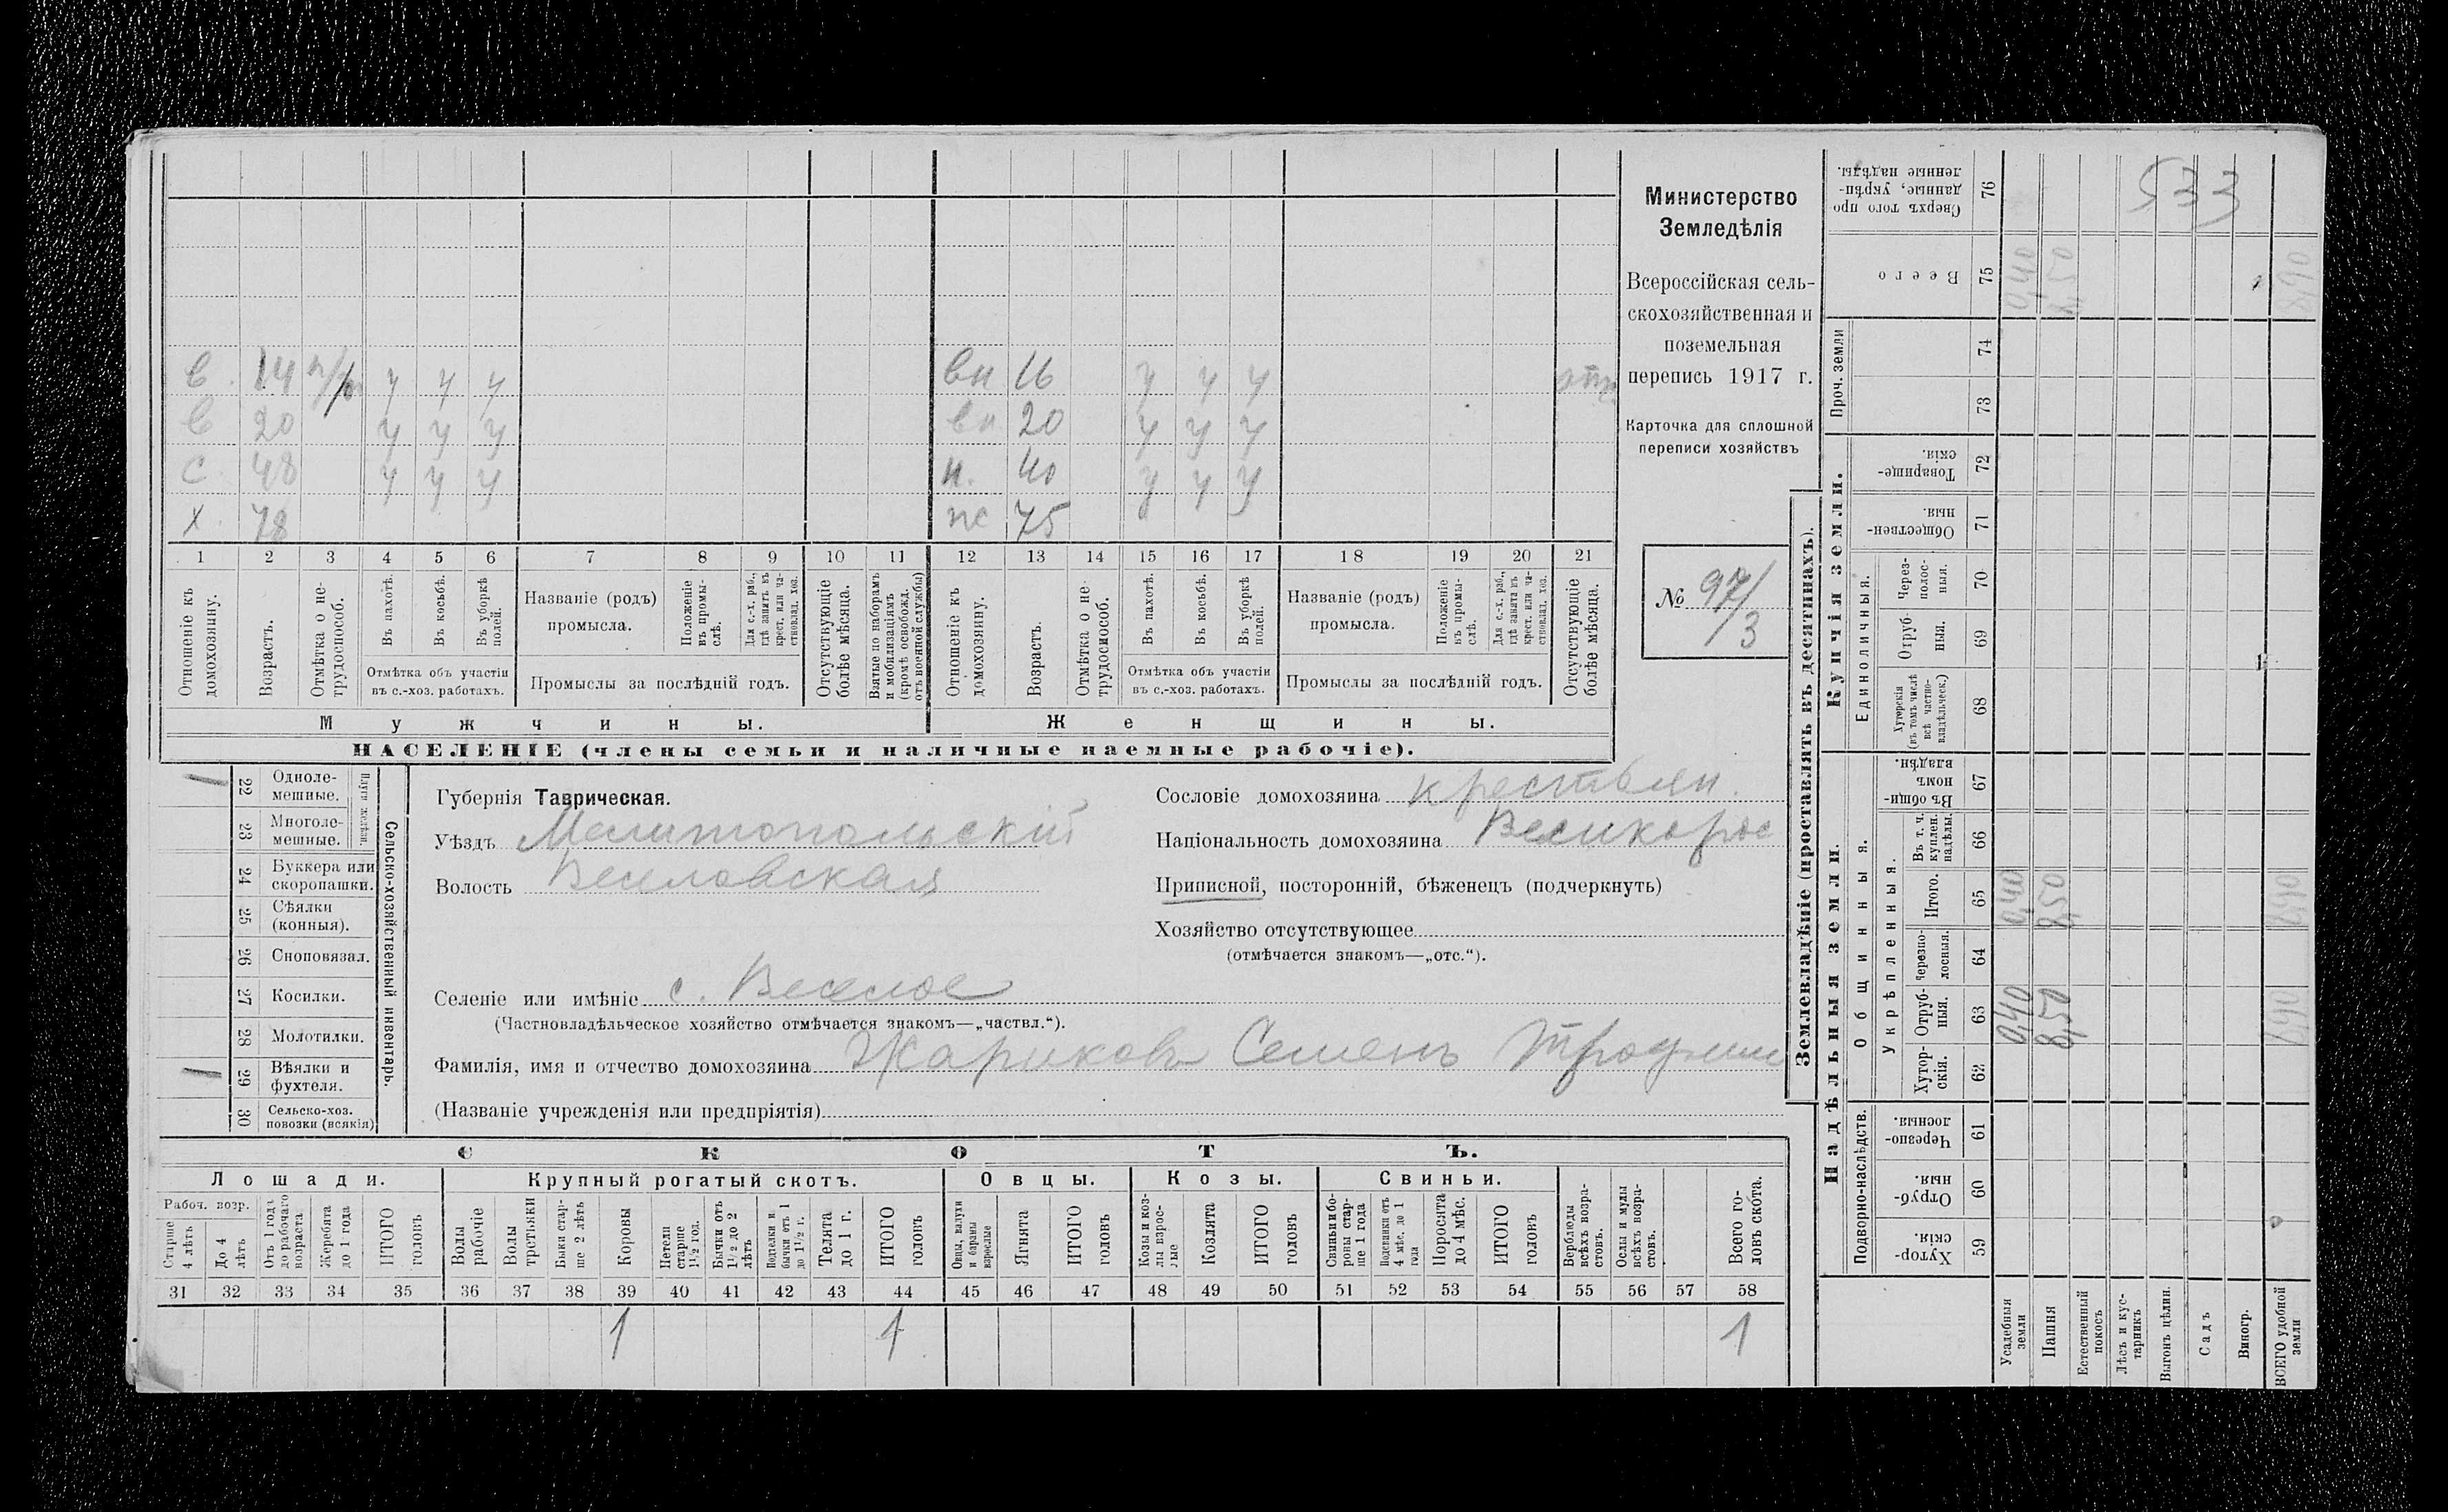 Министерство
Земледѣлія
Всероссійская сель-
скохозяйственная и
поземельная
перепись 1917 г.
Карточка для сплошной
переписи хозяйствъ
№ 97/3
533
в. 14 н/р у у у
в 20 у у у
с. 48 у у у
х. 78
вн 16 у у у
вн 20 у у у
н. 40 у у у
пс 75
1 2 3 4 5 6 7 8 9 10 11 12 13 14 15 16 17 18 19 20 21
Отношеніе къ домохозяину.
Возрастъ.
Отмѣтка о не-трудоспособ.
Въ пахотѣ.
Въ косьбѣ.
Въ уборкѣ полей.
Отмѣтка объ участіи
въ с.-хоз. работахъ.
Названіе (родъ)
промысла.
Положеніе въ промы-слѣ.
Для с.-х. раб., гдѣ занятъ въ крест. или ча-стновлад. хоз.
Промыслы за послѣдній годъ.
Отсутствующіе болѣе мѣсяца.
Взятые по наборамъ и мобилизаціямъ (кромѣ освобожд. отъ военной службы)
Отношеніе къ домохозяину.
Возрастъ.
Отмѣтка о не-трудоспособ.
Въ пахотѣ.
Въ косьбѣ.
Въ уборкѣ полей.
Отмѣтка объ участіи
въ с.-хоз. работахъ.
Названіе (родъ)
промысла.
Положеніе въ промы-слѣ.
Для с.-х. раб., гдѣ занята въ крест. или ча-стновлад. хоз.
Промыслы за послѣдній годъ.
Отсутствующіе болѣе мѣсяца.
Мужчины.
Женщины.
НАСЕЛЕНІЕ (члены семьи и наличные наемные рабочіе).
Сельско-хозяйственный инвентарь.
Плуги желѣзн.
1 22 Одноле-мешные.
23 Многоле-мешные.
24 Буккера или скоропашки.
25 Сѣялки (конныя).
26 Сноповязал.
27 Косилки.
28 Молотилки.
1 29 Вѣялки и фухтеля.
30 Сельско-хоз. повозки (всякія)
Губернія Таврическая.
Уѣздъ Мелитопольскій
Волость Веселовская
Сословіе домохозяина крестьян.
Національность домохозяина Великорос
Приписной, посторонній, бѣженецъ (подчеркнуть)
Хозяйство отсутствующее
(отмѣчается знакомъ—„отс.“).
Селеніе или имѣніе с. Веселое
(Частновладѣльческое хозяйство отмѣчается знакомъ—„частвл.“).
Фамилія, имя и отчество домохозяина Жариковъ Семенъ Трофим
(Названіе учрежденія или предпріятія)
СКОТЪ.
Лошади.
Крупный рогатый скотъ.
Овцы.
Козы.
Свиньи.
Рабоч. возр.
Старше 4 лѣтъ
До 4 лѣтъ
Отъ 1 года до рабочаго возраста
Жеребята до 1 года
ИТОГО головъ
Волы рабочіе
Волы третьяки
Быки стар-ше 2 лѣтъ
Коровы
Нетели старше 1½ год.
Бычки отъ 1½ до 2 лѣтъ
Подтелки и бычки отъ 1 до 1½ г.
Телята до 1 г.
ИТОГО головъ
Овцы, валухи и бараны взрослые
Ягнята
ИТОГО головъ
Козы и коз-лы взрос-лые
Козлята
ИТОГО головъ
Свиньи и бо-ровы стар-ше 1 года
Подсвинки отъ 4 мѣс. до 1 года
Поросята до 4 мѣс.
ИТОГО головъ
Верблюды всѣхъ возра-стовъ.
Ослы и мулы всѣхъ возра-стовъ.
Всего го-ловъ скота.
31 32 33 34 35 36 37 38 39 40 41 42 43 44 45 46 47 48 49 50 51 52 53 54 55 56 57 58
1 1 1
Землевладѣніе (проставлять въ десятинахъ).
Надѣльныя земли.
Купчія земли.
Проч. земли
Подворно-наслѣдств.
Общинныя.
Укрѣпленныя.
Единоличныя.
Сверхъ того про-данные, укрѣп-ленные надѣлы. 76
Всего 75 0,40 8,50 8,90
74
73
Товарище-скія. 72
Обществен-ныя. 71
Через-полос-ныя. 70
Отруб-ныя. 69
Хуторскія (въ томъ числѣ всѣ частно-владѣльческ.) 68
Въ общи-номъ владѣн. 67
Въ т. ч. куплен. надѣлы. 66
Итого. 65 0,40 8,50 8,90
Черезпо-лосныя. 64
Отруб-ныя. 63 0,40 8,50 8,90
Хутор-скія. 62
Черезпо-лосныя. 61
Отруб-ныя. 60
Хутор-скія. 59
Усадебныя земли
Пашня
Естественный покосъ
Лѣсъ и кус-тарникъ
Выгонъ цѣлин.
Садъ
Виногр.
ВСЕГО удобной земли